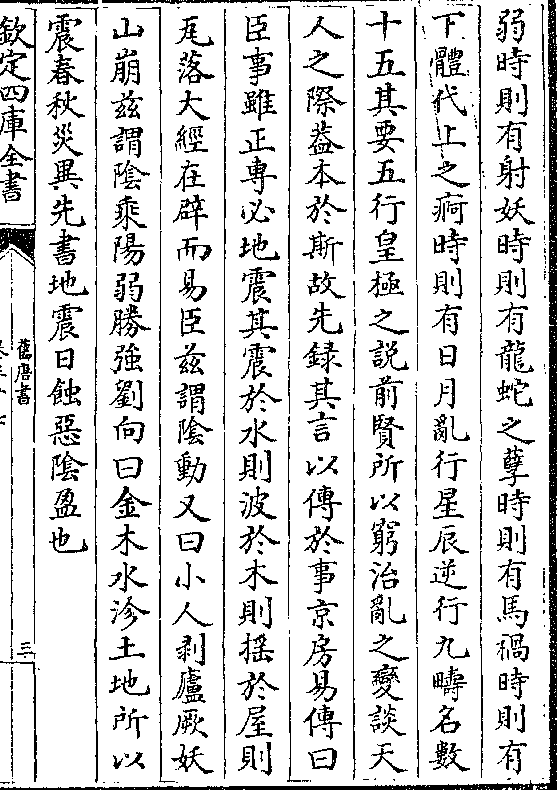 弱時則有射妖時則有龍蛇之孽時則有馬禍時則有
下體代上之痾時則有日月亂行星辰逆行九疇名數
十五其要五行皇極之説前賢所以窮治亂之變談天
人之際葢本於斯故先録其言以傳於事京房易傳曰
臣事雖正專必地震其震於水則波於木則摇於屋則
瓦落大經在辟而易臣兹謂隂動又曰小人剥廬厥妖
山崩兹謂隂乘陽弱勝強劉向曰金木水沴土地所以
震春秋災異先書地震日蝕惡隂盈也
欽定四庫全書
舊唐書
三